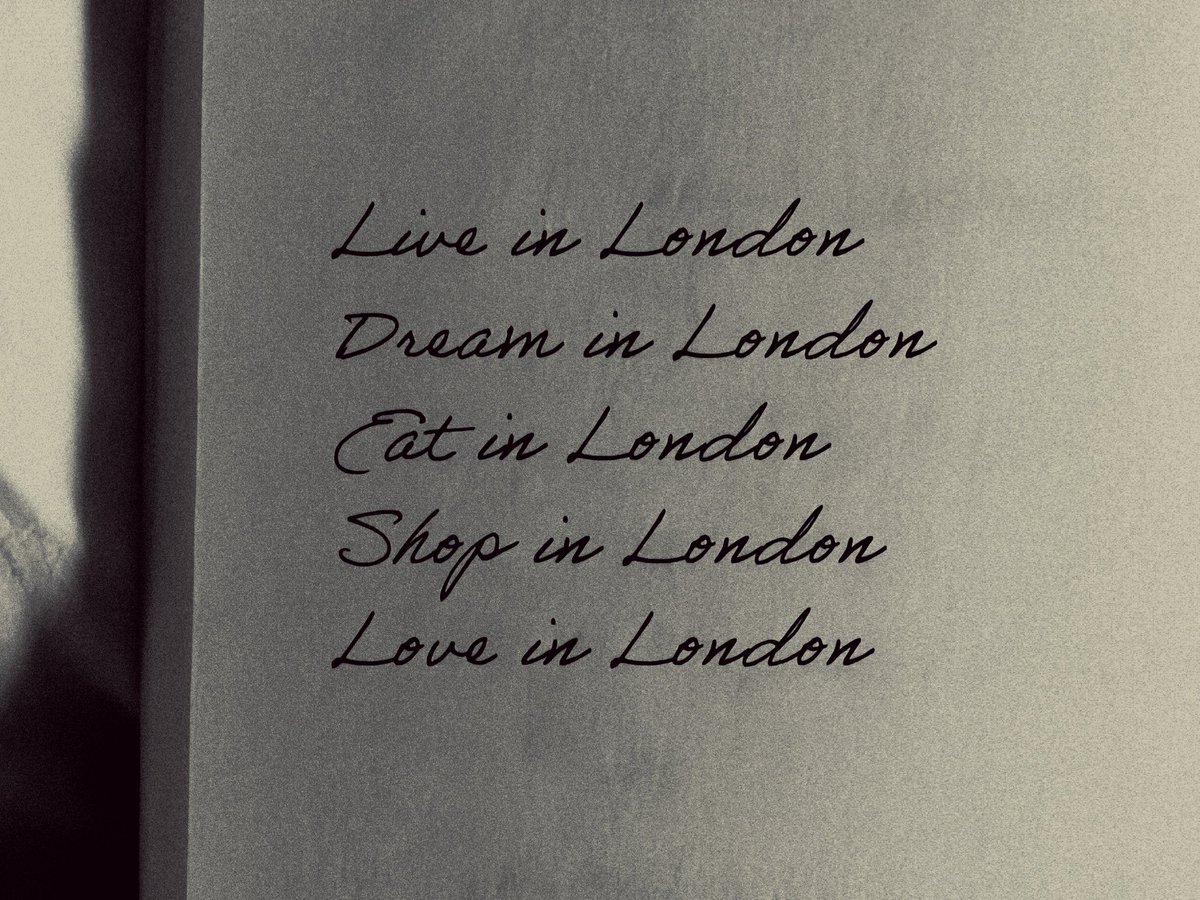 Live in London
Dream in London
Eat in London
Shop in London
Love in London